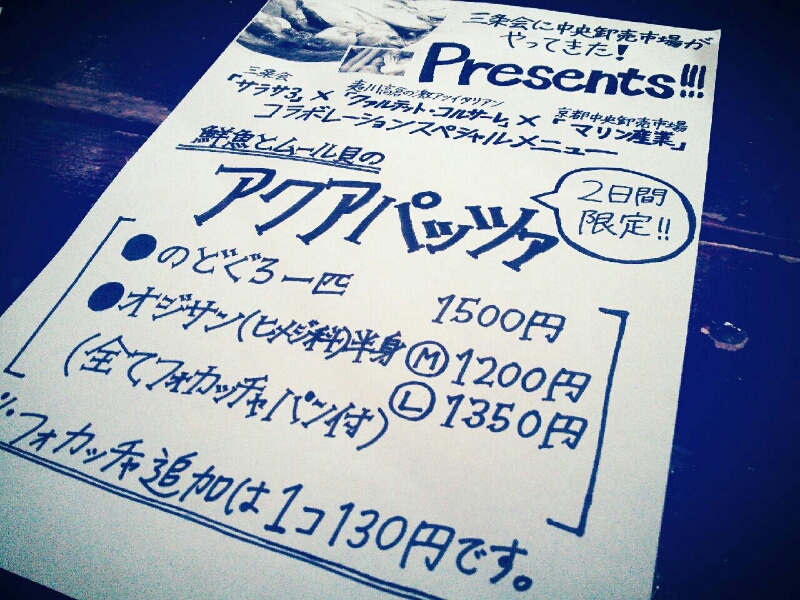 三条会に中央卸売市場が
やってきた!
Presents!!!
三条会 夷川高倉の激アツイタリアン 京都中央卸売市場
『サラサ3』×『クァルテット・コルサーレ』×『マリン産業』
コラボレーションスペシャルメニュー
鮮魚とムール貝の
アクアパッツァ
2日間
限定!!
●のどぐろ一匹 1500円
●オジサン(ヒメジ科)半身 Ⓜ1200円
(全てフォカッチャパン付) Ⓛ1350円
※フォカッチャ追加は1コ130円です。